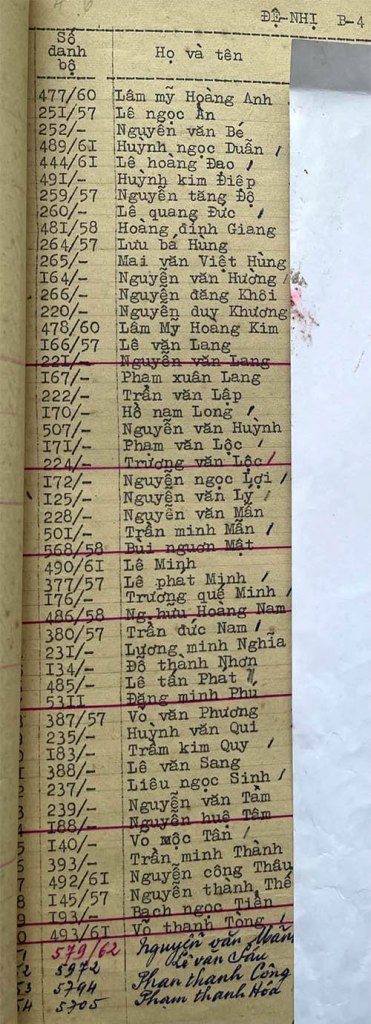 ĐỆ-NHỊ B-4
Số danh bộ Họ và tên
477/60 Lâm mỹ Hoàng Anh
251/57 Lê ngọc Ẩn
252/- Nguyễn văn Bé
489/61 Huỳnh ngọc Duẫn /
444/61 Lê hoàng Đạo /
491/- Huỳnh kim Điệp
259/57 Nguyễn tăng Độ
260/- Lê quang Đức /
481/58 Hoàng đình Giang
264/57 Lưu bá Hùng
265/- Mai văn Việt Hùng
164/- Nguyễn văn Hương /
266/- Nguyễn đăng Khôi
220/- Nguyễn duy Khương
478/60 Lâm Mỹ Hoàng Kim
166/57 Lê văn Lang
221/- Nguyễn văn Lang
167/- Phạm xuân Lang
222/- Trần văn Lập
170/- Hồ nam Long /
507/- Nguyễn văn Huỳnh
171/- Phạm văn Lộc /
224/- Trương văn Lộc /
172/- Nguyễn ngọc Lợi /
125/- Nguyễn văn Ly /
228/- Nguyễn văn Mẫn
501/- Trần minh Mẫn /
568/58 Bùi nguơn Mật
490/61 Lê Minh
377/57 Lê phát Minh /
176/- Trương quế Minh /
486/58 Ng.hữu Hoàng Nam
380/57 Trần đức Nam /
231/- Lương minh Nghĩa
134/- Đỗ thành Nhơn
485/- Lê tấn Phat
5311 Đặng minh Phú
387/57 Võ văn Phương
235/- Huỳnh văn Qui
183/- Trầm kim Quy /
388/- Lê văn Sang
237/- Liêu ngọc Sinh /
239/- Nguyễn văn Tâm
188/- Nguyễn huệ Tâm
140/- Vo mộc Tân /
393/- Trần minh Thành
492/61 Nguyễn công Thâu
145/57 Nguyễn thành Thế
193/- Bạch ngọc Tiên
493/61 Võ thanh Tòng /
579/62 Nguyễn văn Mẫn
5972 Lê văn Sáu
5794 Phan thanh Công
5705 Phạm thanh Hóa